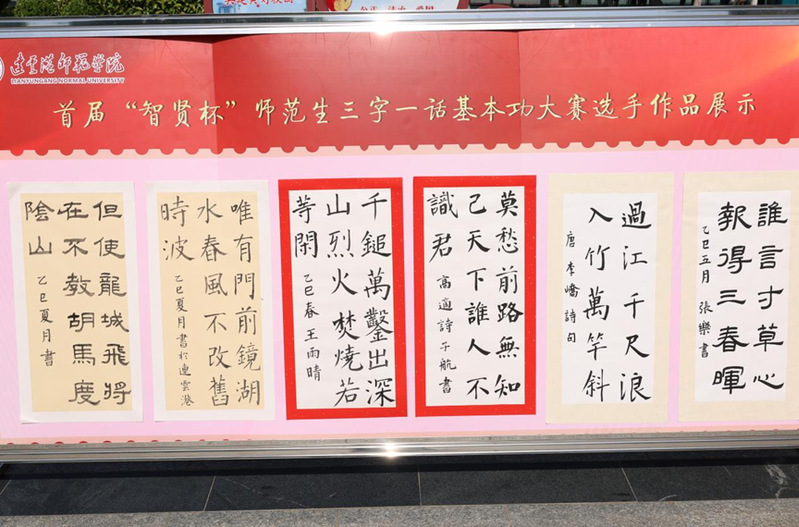 连云港师范学院
LIANYUNGANG NORMAL UNIVERSITY
首届“智贤杯”师范生三字一话基本功大赛选手作品展示
誰言寸草心
報得三春暉
乙巳五月 張樂書
過江千尺浪
入竹萬竿斜
唐 李嶠詩句
莫愁前路無知
己天下誰人不
識君
高適詩子航書
千鎚萬鑿出深
山烈火焚燒若
等閑
乙巳春 王雨晴
唯有門前鏡湖
水春風不改舊
時波
乙巳夏月書於連雲港
但使龍城飛將
在不教胡馬度
陰山
乙巳夏月書